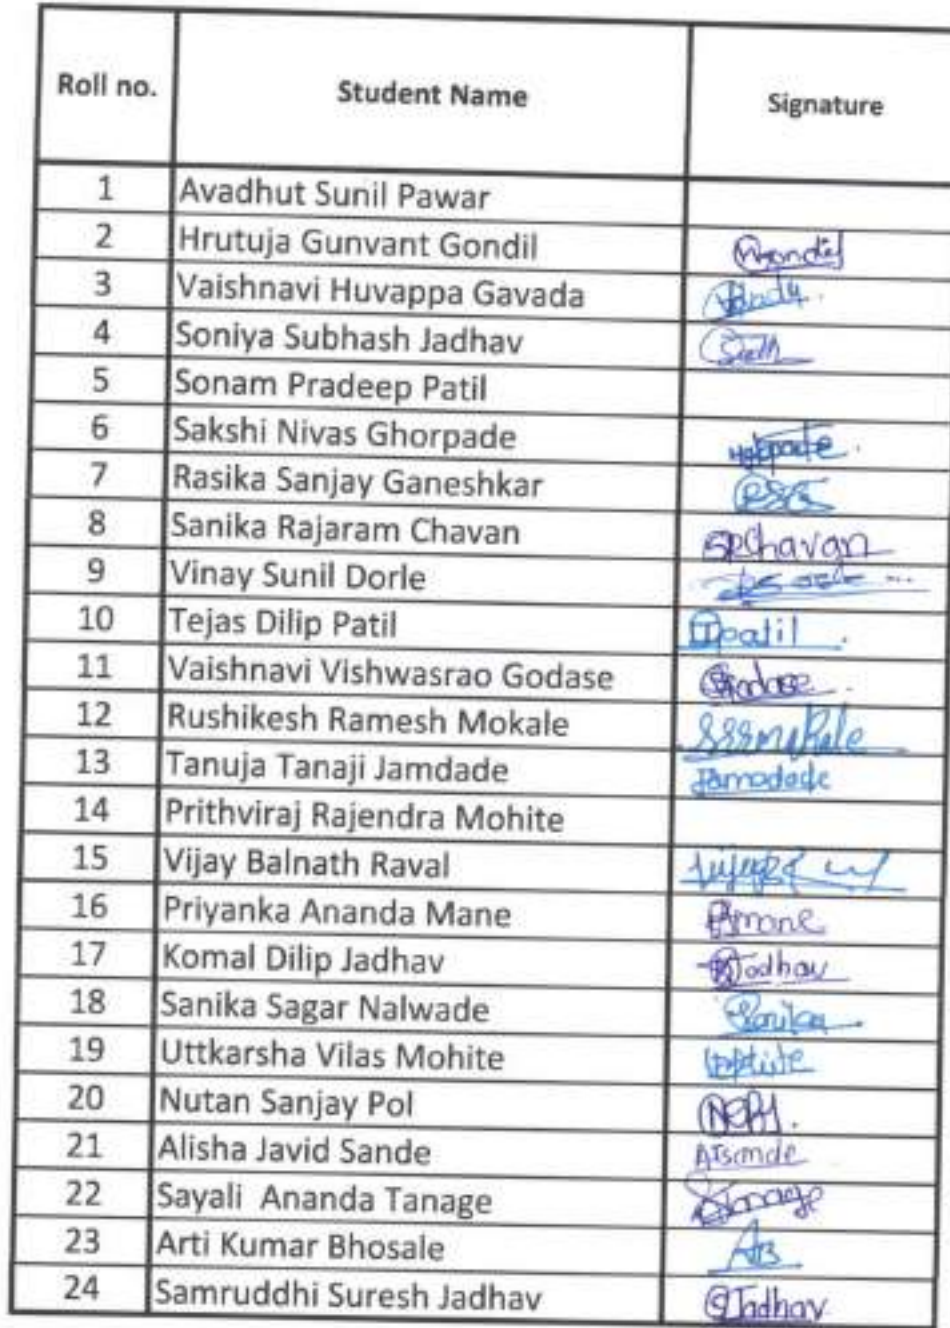 Roll no. Student Name Signature
1 Avadhut Sunil Pawar
2 Hrutuja Gunvant Gondil
3 Vaishnavi Huvappa Gavada
4 Soniya Subhash Jadhav
5 Sonam Pradeep Patil
6 Sakshi Nivas Ghorpade
7 Rasika Sanjay Ganeshkar
8 Sanika Rajaram Chavan SRChavan
9 Vinay Sunil Dorle
10 Tejas Dilip Patil Tpatil.
11 Vaishnavi Vishwasrao Godase
12 Rushikesh Ramesh Mokale
13 Tanuja Tanaji Jamdade
14 Prithviraj Rajendra Mohite
15 Vijay Balnath Raval
16 Priyanka Ananda Mane PAmane
17 Komal Dilip Jadhav
18 Sanika Sagar Nalwade Sanika
19 Uttkarsha Vilas Mohite
20 Nutan Sanjay Pol
21 Alisha Javid Sande AJSande
22 Sayali Ananda Tanage
23 Arti Kumar Bhosale
24 Samruddhi Suresh Jadhav SJadhav